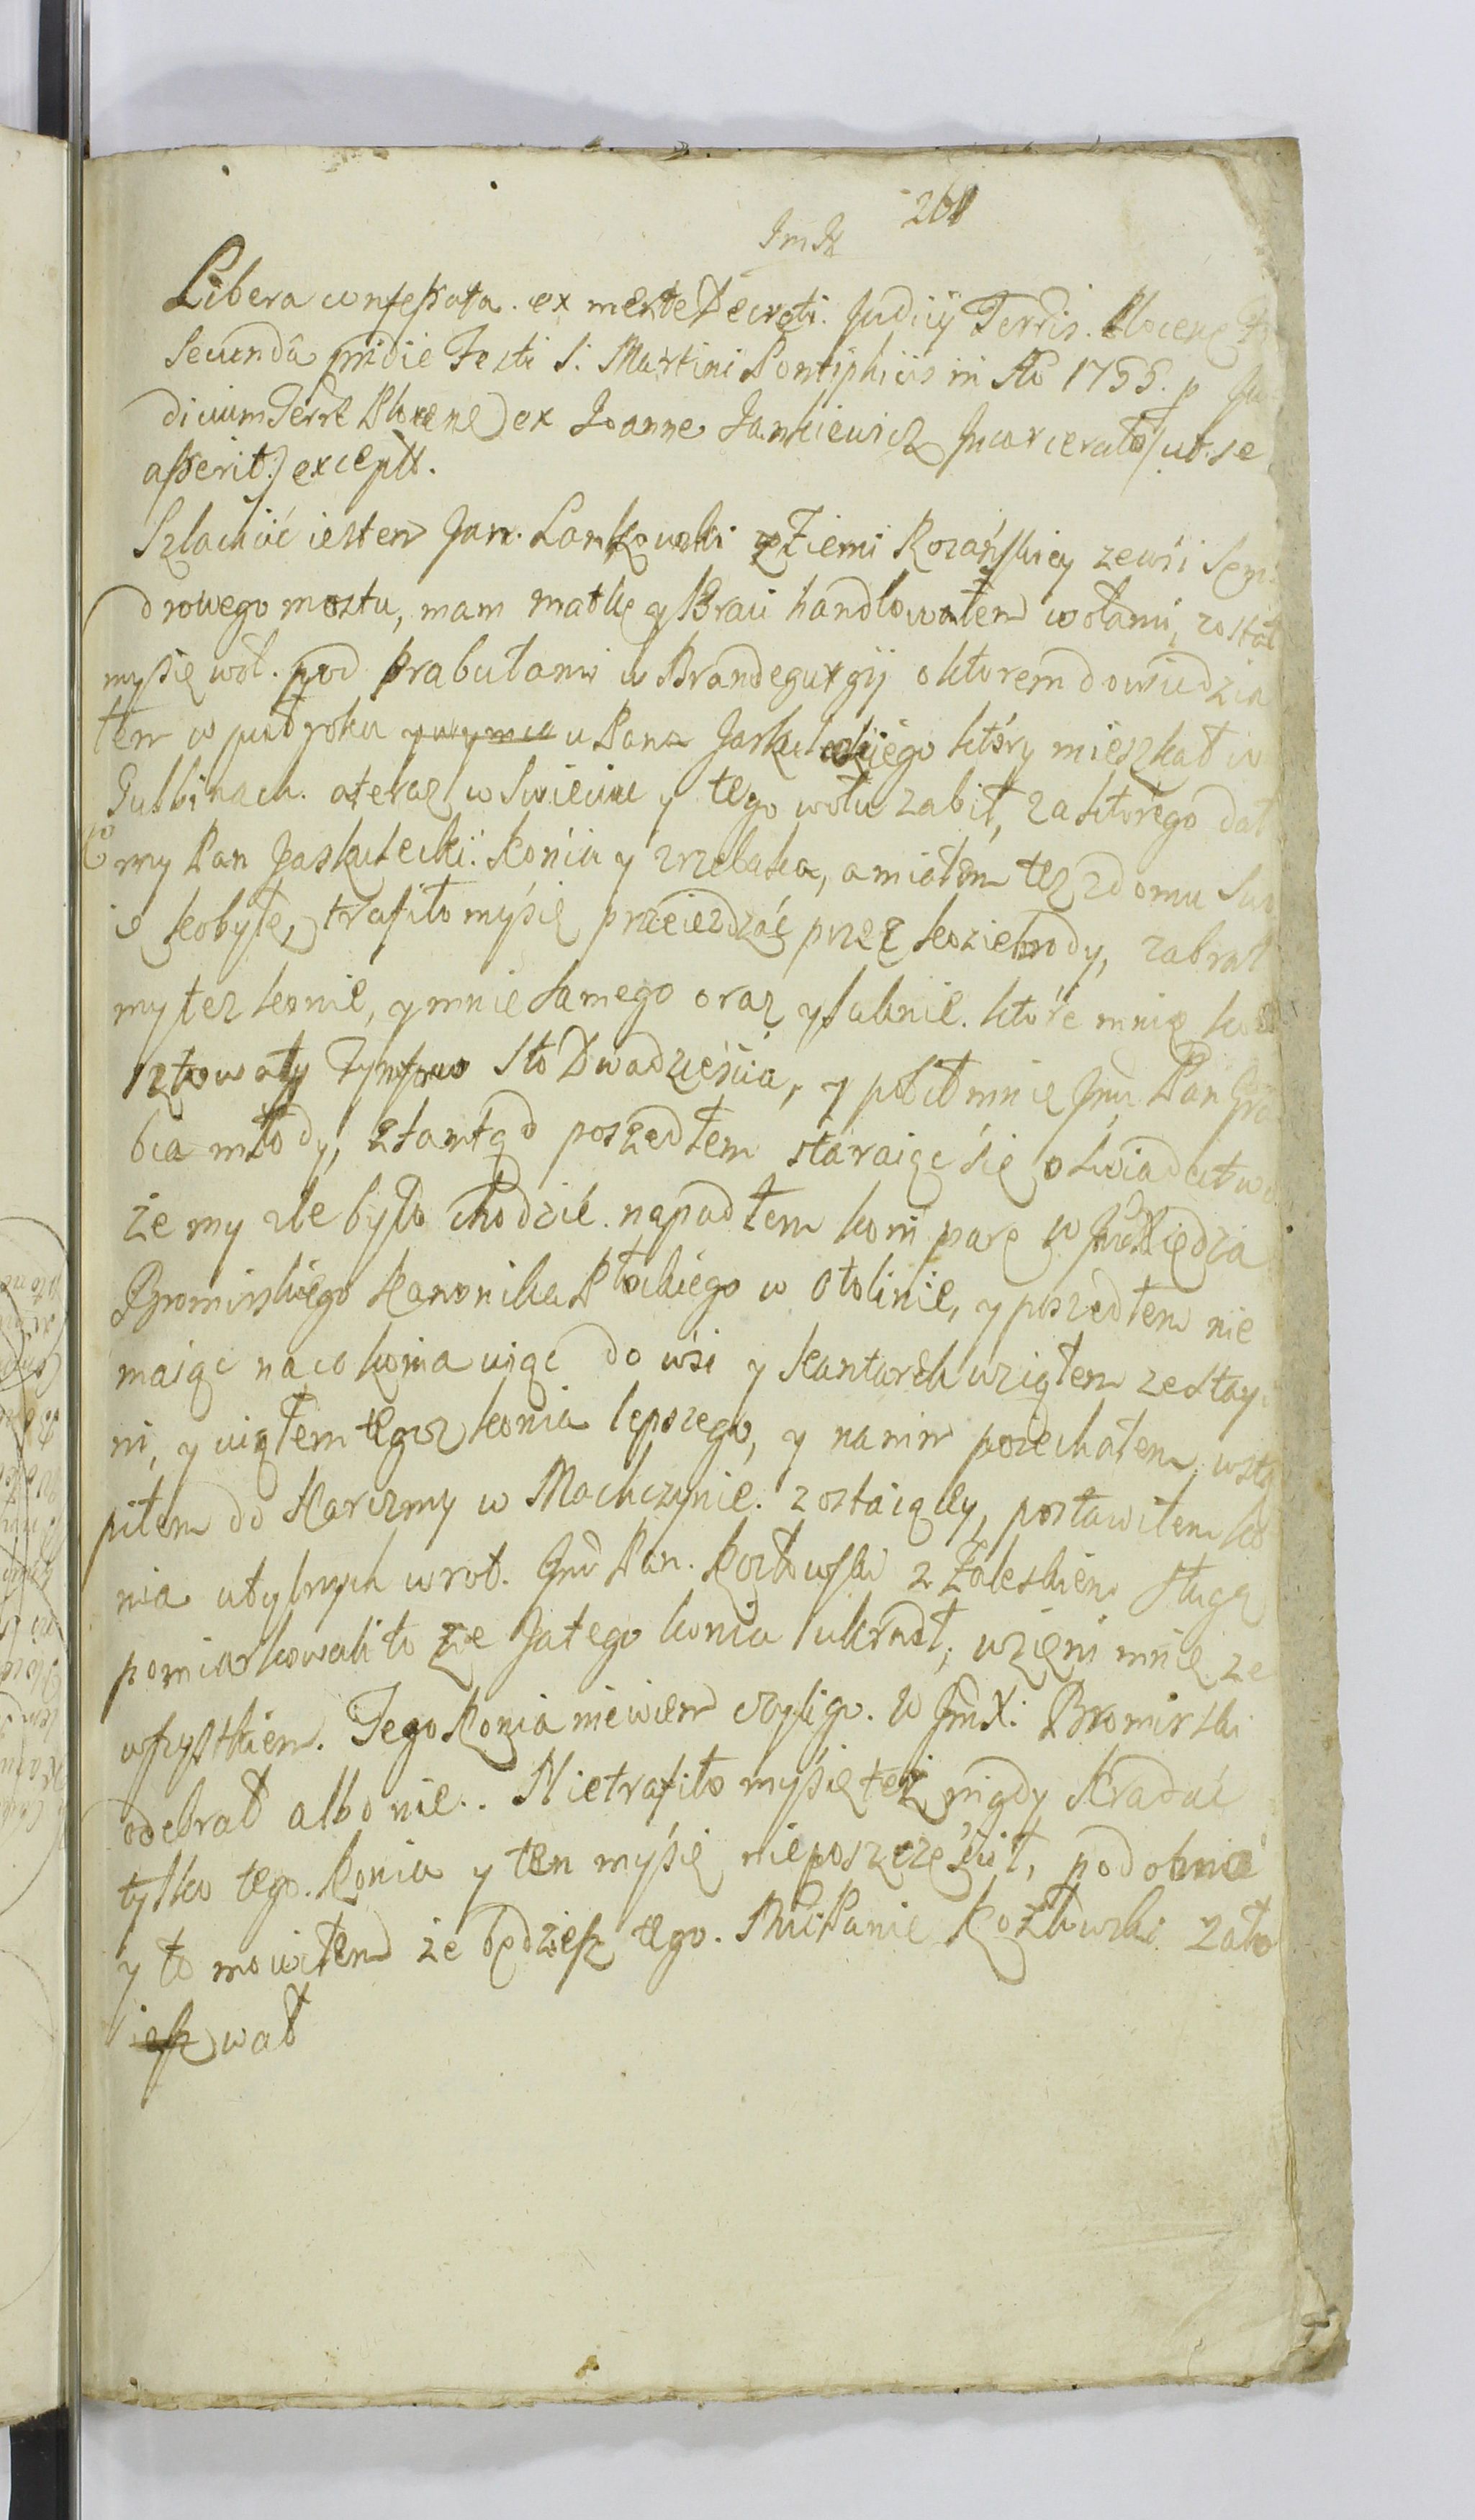 261
Libera confessata. ex mente Decreti. Judicij Terris. Plocens
Secunda pridie Festi S. Martini Pontiphicis in Ao 1755. p Ju
dicium Terre Plocene) ex Joanne Jankiewicz Incarcerato (ut se
asserit.) except.
Szlachcic iestem Jan. Lankowski z Ziemi Rozańskiey zewsi Sem
drowego mostu, mam matkę y Braci handlowałem wołami, został
mysię woł. pod Prabutami w Brandeguryij oktorem dowiedzia
łem w pułroku u Pana Jaskuleckiego który mieszkał w
Gulbinach. ateraz w Swieciu y tego wołu zabił, zaktorego dał
my Pan Jaskulecki. Konia y zrzebaka, amiałem tez zdomu Swo
ie kobyłę, trafiłomysię przeieżdżać przez koziebrody, zabrał
my tez konie, y mnie samego oraz y suknie. które mnie ko
sztowały Tynfow Sto Dwadzieścia, y pobił mnie Jmć Pan Gra
bia młody, ztamtąd poszedłem staraiąc się o swiadectwo
że my zle było chodzić. napadłem koni parę w Jmć Xiędza
Bromirskiego Kanonika Płockiego w Otolinie, y poszedłem nie
maiąc naco konia uiąc do wsi y Kantarek wziąłem zestay
ni, y uiąłem tegoz konia lepszego, y nanim poiechałem, wstą
piłem do Karczmy w Mochczynie. zostaiącey, postawiłem ko
nia utylnych wrot. Jmć Pan. Kozłowski z Zaleskiem sługą
pomiarkowali to że Jatego konia ukradł, wzięni mnie ze
wszystkiem. Tego Konia niewiem czyligo. W Jmć X. Bromirski
odebrał albo nie. Nietrafiło mysię też nigdy Kradać
tylko tego. Konia y ten mysię nieposzczęścił, podobnie
y to mowiłem że będziesz tego. Mci Panie Kozłowski zało
wał